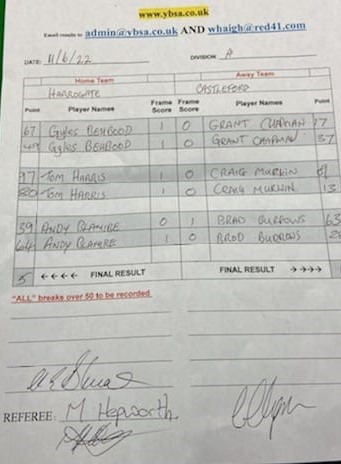 www.ybsa.co.uk
Email results to admin@ybsa.co.uk AND whaigh@red41.com
DATE: 11/6/22 DIVISION A
Home Team Away Team
HARROGATE CASTLEFORD
Point Player Names Frame Score Frame Score Player Names Point
67 Gyles BEHBOOD 1 0 GRANT CHAPMAN 17
Gyles BEHBOOD 1 0 GRANT CHAPMAN 37
97 Tom HARRIS 1 0 CRAIG MURWIN
Tom HARRIS 1 0 CRAIG MURWIN 13
39 ANDY 0 1 BRAD BURROWS 63
64 ANDY 1 0 BROD BURROWS
5 ←←←← FINAL RESULT FINAL RESULT →→→→
"ALL" breaks over 50 to be recorded
REFEREE: M Hepworth